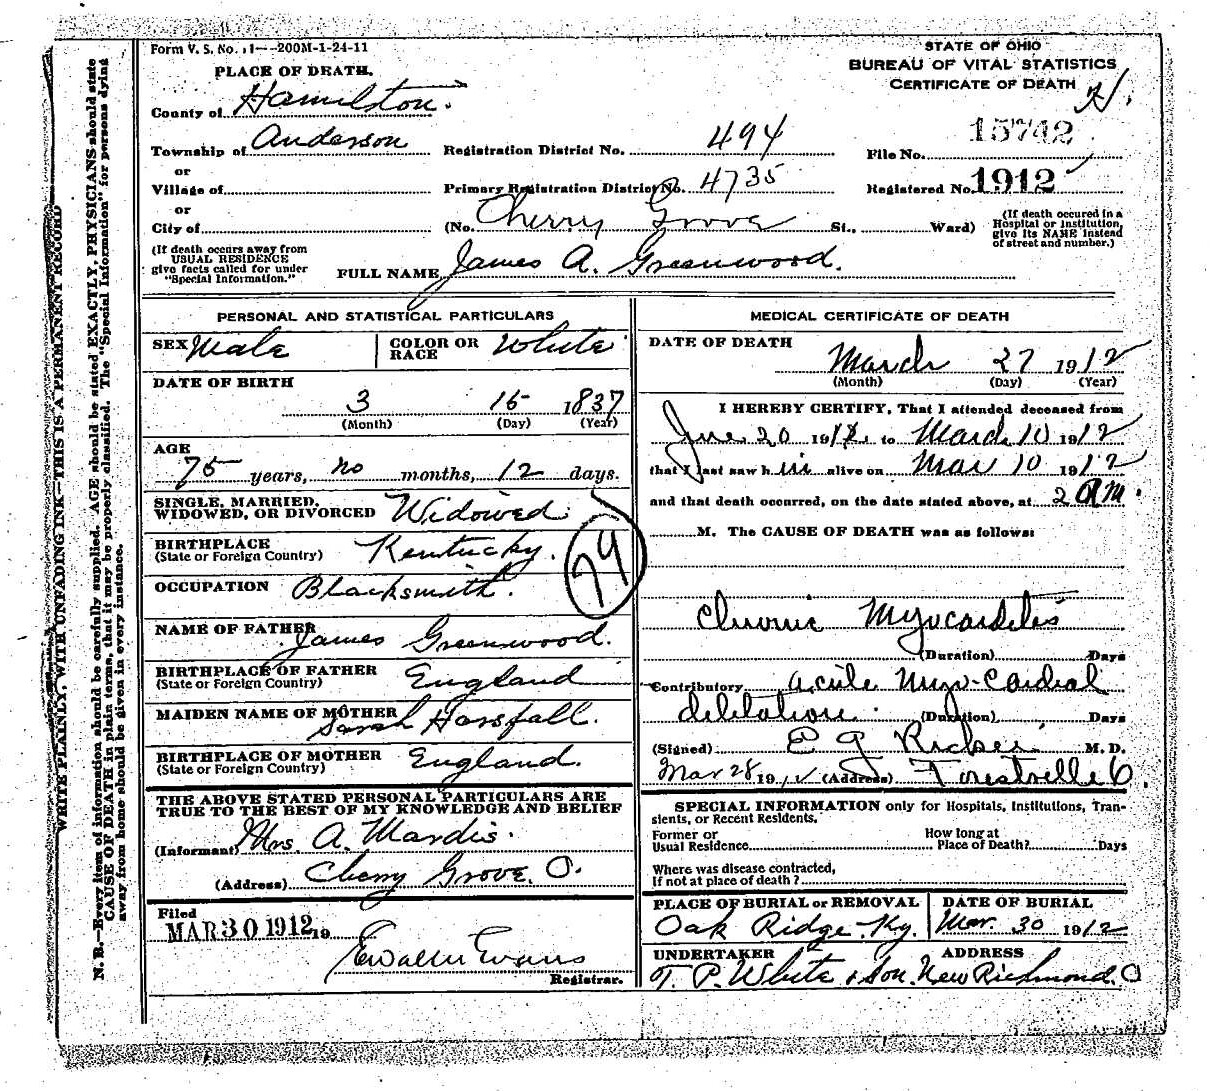 Form V. S. No. 11—200M-1-24-11
STATE OF OHIO
BUREAU OF VITAL STATISTICS
CERTIFICATE OF DEATH
PLACE OF DEATH.
County of Hamilton.
Township of Anderson
Registration District No. 494
File No. 15742
or
Village of
Primary Registration District No. 4735
Registered No. 1912
or
City of
(No. Cherry Grove St., Ward)
(If death occured in a
Hospital or Institution,
give its NAME instead
of street and number.)
(If death occurs away from
USUAL RESIDENCE
give facts called for under
"Special Information.")
FULL NAME James A. Greenwood.
PERSONAL AND STATISTICAL PARTICULARS
SEX Male
COLOR OR
RACE White
DATE OF BIRTH
3 15 1837
(Month) (Day) (Year)
AGE
75 years, no months, 12 days.
SINGLE, MARRIED,
WIDOWED, OR DIVORCED Widowed
BIRTHPLACE
(State or Foreign Country) Kentucky.
79
OCCUPATION Blacksmith.
NAME OF FATHER James Greenwood.
BIRTHPLACE OF FATHER
(State or Foreign Country) England
MAIDEN NAME OF MOTHER Sarah Horsfall.
BIRTHPLACE OF MOTHER
(State or Foreign Country) England.
THE ABOVE STATED PERSONAL PARTICULARS ARE
TRUE TO THE BEST OF MY KNOWLEDGE AND BELIEF
(Informant) Mrs. A. Mardis.
(Address) Cherry Grove, O.
Filed
MAR 30 1912 19
Ewalter Evans
Registrar.
MEDICAL CERTIFICATE OF DEATH
DATE OF DEATH
March 27 1912
(Month) (Day) (Year)
I HEREBY CERTIFY, That I attended deceased from
20 191 to March 10 1912
that I last saw h im alive on Mar 10 1912
and that death occurred, on the date stated above, at 2 am.
M. The CAUSE OF DEATH was as follows:
Chronic Myocarditis
(Duration) Days
Contributory acute Myo-Cardial
dilitation. (Duration) Days
(Signed) E G M. D.
Mar 28 191 (Address) Forestville O.
SPECIAL INFORMATION only for Hospitals, Institutions, Tran-
sients, or Recent Residents.
Former or
Usual Residence
How long at
Place of Death? Days
Where was disease contracted,
If not at place of death?
PLACE OF BURIAL or REMOVAL
Oak Ridge. Ky.
DATE OF BURIAL
Mar. 30 1912
UNDERTAKER
T. P. White & Son.
ADDRESS
New Richmond. O
WRITE PLAINLY, WITH UNFADING INK—THIS IS A PERMANENT RECORD
N. B.—Every item of information should be carefully supplied. AGE should be stated EXACTLY, PHYSICIANS should state
CAUSE OF DEATH in plain terms, that it may be properly classified. The "Special Information" for persons dying
away from home should be given in every instance.